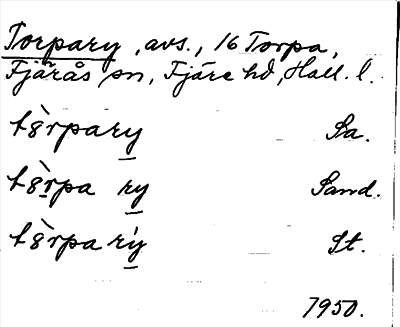 Torpary, avs., 16 Torpa,
Fjärås sn, Fjäre hd, Hall. l.
tȣ̀rpary Sa.
tȣ̀rpa ry Sand.
tȣ̀rpa rý St.
1950.